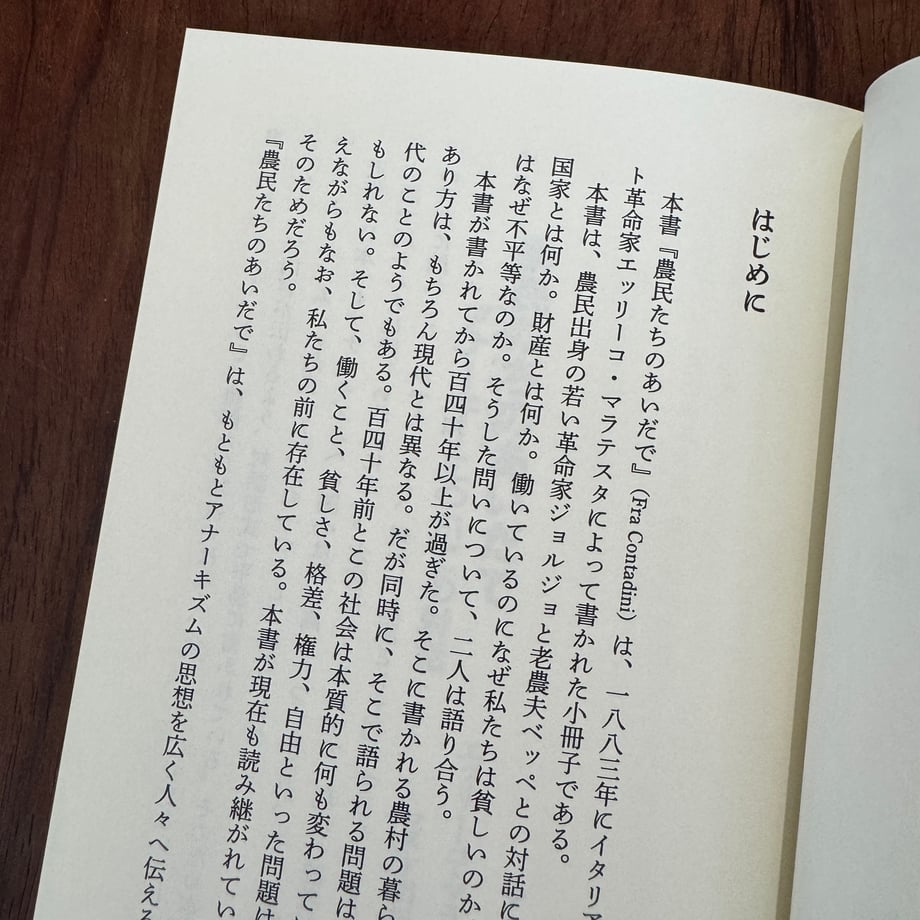 はじめに
本書『農民たちのあいだで』（Fra Contadini）は、一八八三年にイタリア
ト革命家エッリーコ・マラテスタによって書かれた小冊子である。
本書は、農民出身の若い革命家ジョルジョと老農夫ベッペとの対話に
国家とは何か。財産とは何か。働いているのになぜ私たちは貧しいのか
はなぜ不平等なのか。そうした問いについて、二人は語り合う。
本書が書かれてから百四十年以上が過ぎた。そこに書かれる農村の暮ら
あり方は、もちろん現代とは異なる。だが同時に、そこで語られる問題は
代のことのようでもある。百四十年前とこの社会は本質的に何も変わって
もしれない。そして、働くこと、貧しさ、格差、権力、自由といった問題は
えながらもなお、私たちの前に存在している。本書が現在も読み継がれてい
そのためだろう。
『農民たちのあいだで』は、もともとアナーキズムの思想を広く人々へ伝える